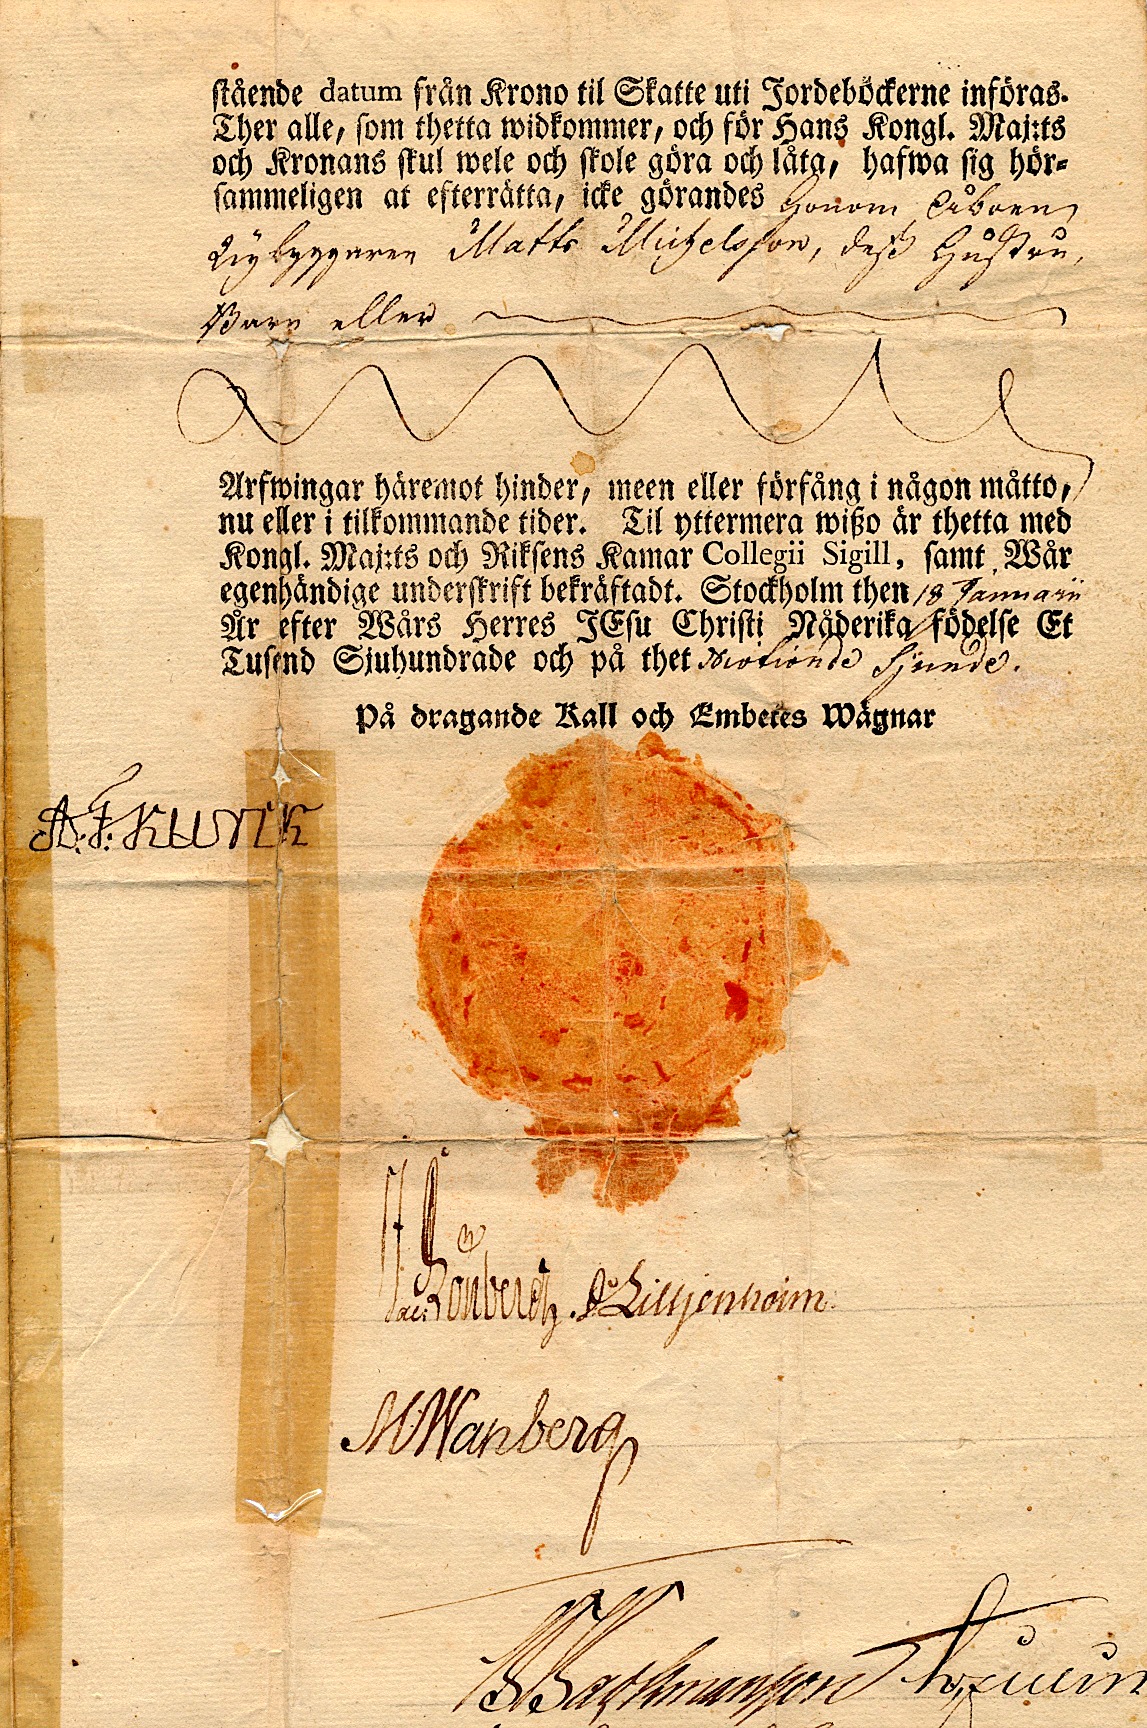 stående datum från Krono til Skatte uti Jordeböckerne införas.
Ther alle, som thetta widkommer, och för Hans Kongl. Maj:ts
och Kronans skul wele och skole göra och låta, hafwa sig hör-
sammeligen at efterrätta, icke görandes honom Åboen
Nybyggaren Matts Michelsson, dess Hustru,
Barn eller
Arfwingar häremot hinder, meen eller förfång i någon måtto,
nu eller i tilkommande tider. Til yttermera wißo är thetta med
Kongl. Maj:ts och Riksens Kamar Collegii Sigill, samt Wår
egenhändige underskrift bekräftadt. Stockholm then 18 Januarii
År efter Wårs Herres JEsu Christi Nåderika födelse Et
Tusend Sjuhundrade och på thet Siunde.
På dragande Kall och Embetes Wägnar
A. F. KURCK
Lilljenholm
M Wanberg